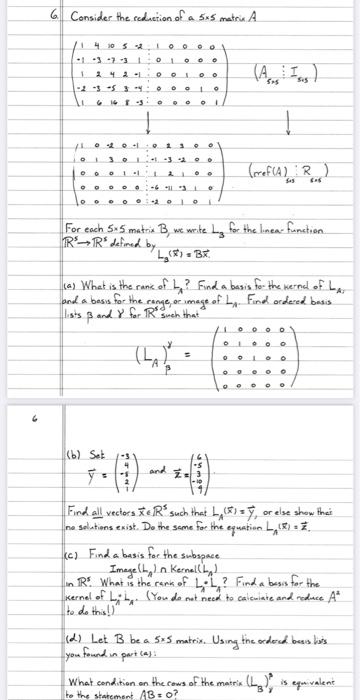 6. Consider the reduction of a 5x5 matrix A
1 4 10 5 -2 : 1 0 0 0 0
-1 -3 -7 -3 1 : 0 1 0 0 0
1 2 4 2 -1 : 0 0 1 0 0 (A5x5 : I5x5)
-2 -3 -5 3 -4 : 0 0 0 1 0
1 6 16 8 -3 : 0 0 0 0 1
↓ ↓
1 0 -2 0 -1 : 0 2 3 0 0
0 1 3 0 1 : -1 -3 -2 0 0
0 0 0 1 -1 : 1 2 1 0 0 (rref(A)5x5 : R5x5)
0 0 0 0 0 : -6 -11 -3 1 0
0 0 0 0 0 : -2 0 1 0 1
For each 5x5 matrix B, we write L_B for the linear function
R⁵→R⁵ defined by
L_B(x⃗) = Bx⃗.
(a) What is the rank of L_A? Find a basis for the kernel of L_A,
and a basis for the range, or image of L_A. Find ordered basis
lists β and γ for R⁵ such that
1 0 0 0 0
0 1 0 0 0
(L_A)_β^γ = 0 0 1 0 0
0 0 0 0 0
0 0 0 0 0
6
(b) Set
y⃗ = (-3 4 -5 2 1) and z⃗ = (6 -5 3 -10 9)
Find all vectors x⃗∈R⁵ such that L_A(x⃗) = y⃗, or else show that
no solutions exist. Do the same for the equation L_A(x⃗) = z⃗.
(c) Find a basis for the subspace
Image(L_A) ∩ Kernel(L_A)
in R⁵. What is the rank of L_A∘L_A? Find a basis for the
kernel of L_A∘L_A. (You do not need to calculate and reduce A²
to do this!)
(d) Let B be a 5x5 matrix. Using the ordered basis lists
you found in part (a):
What condition on the rows of the matrix (L_B)_γ^β is equivalent
to the statement AB=0?